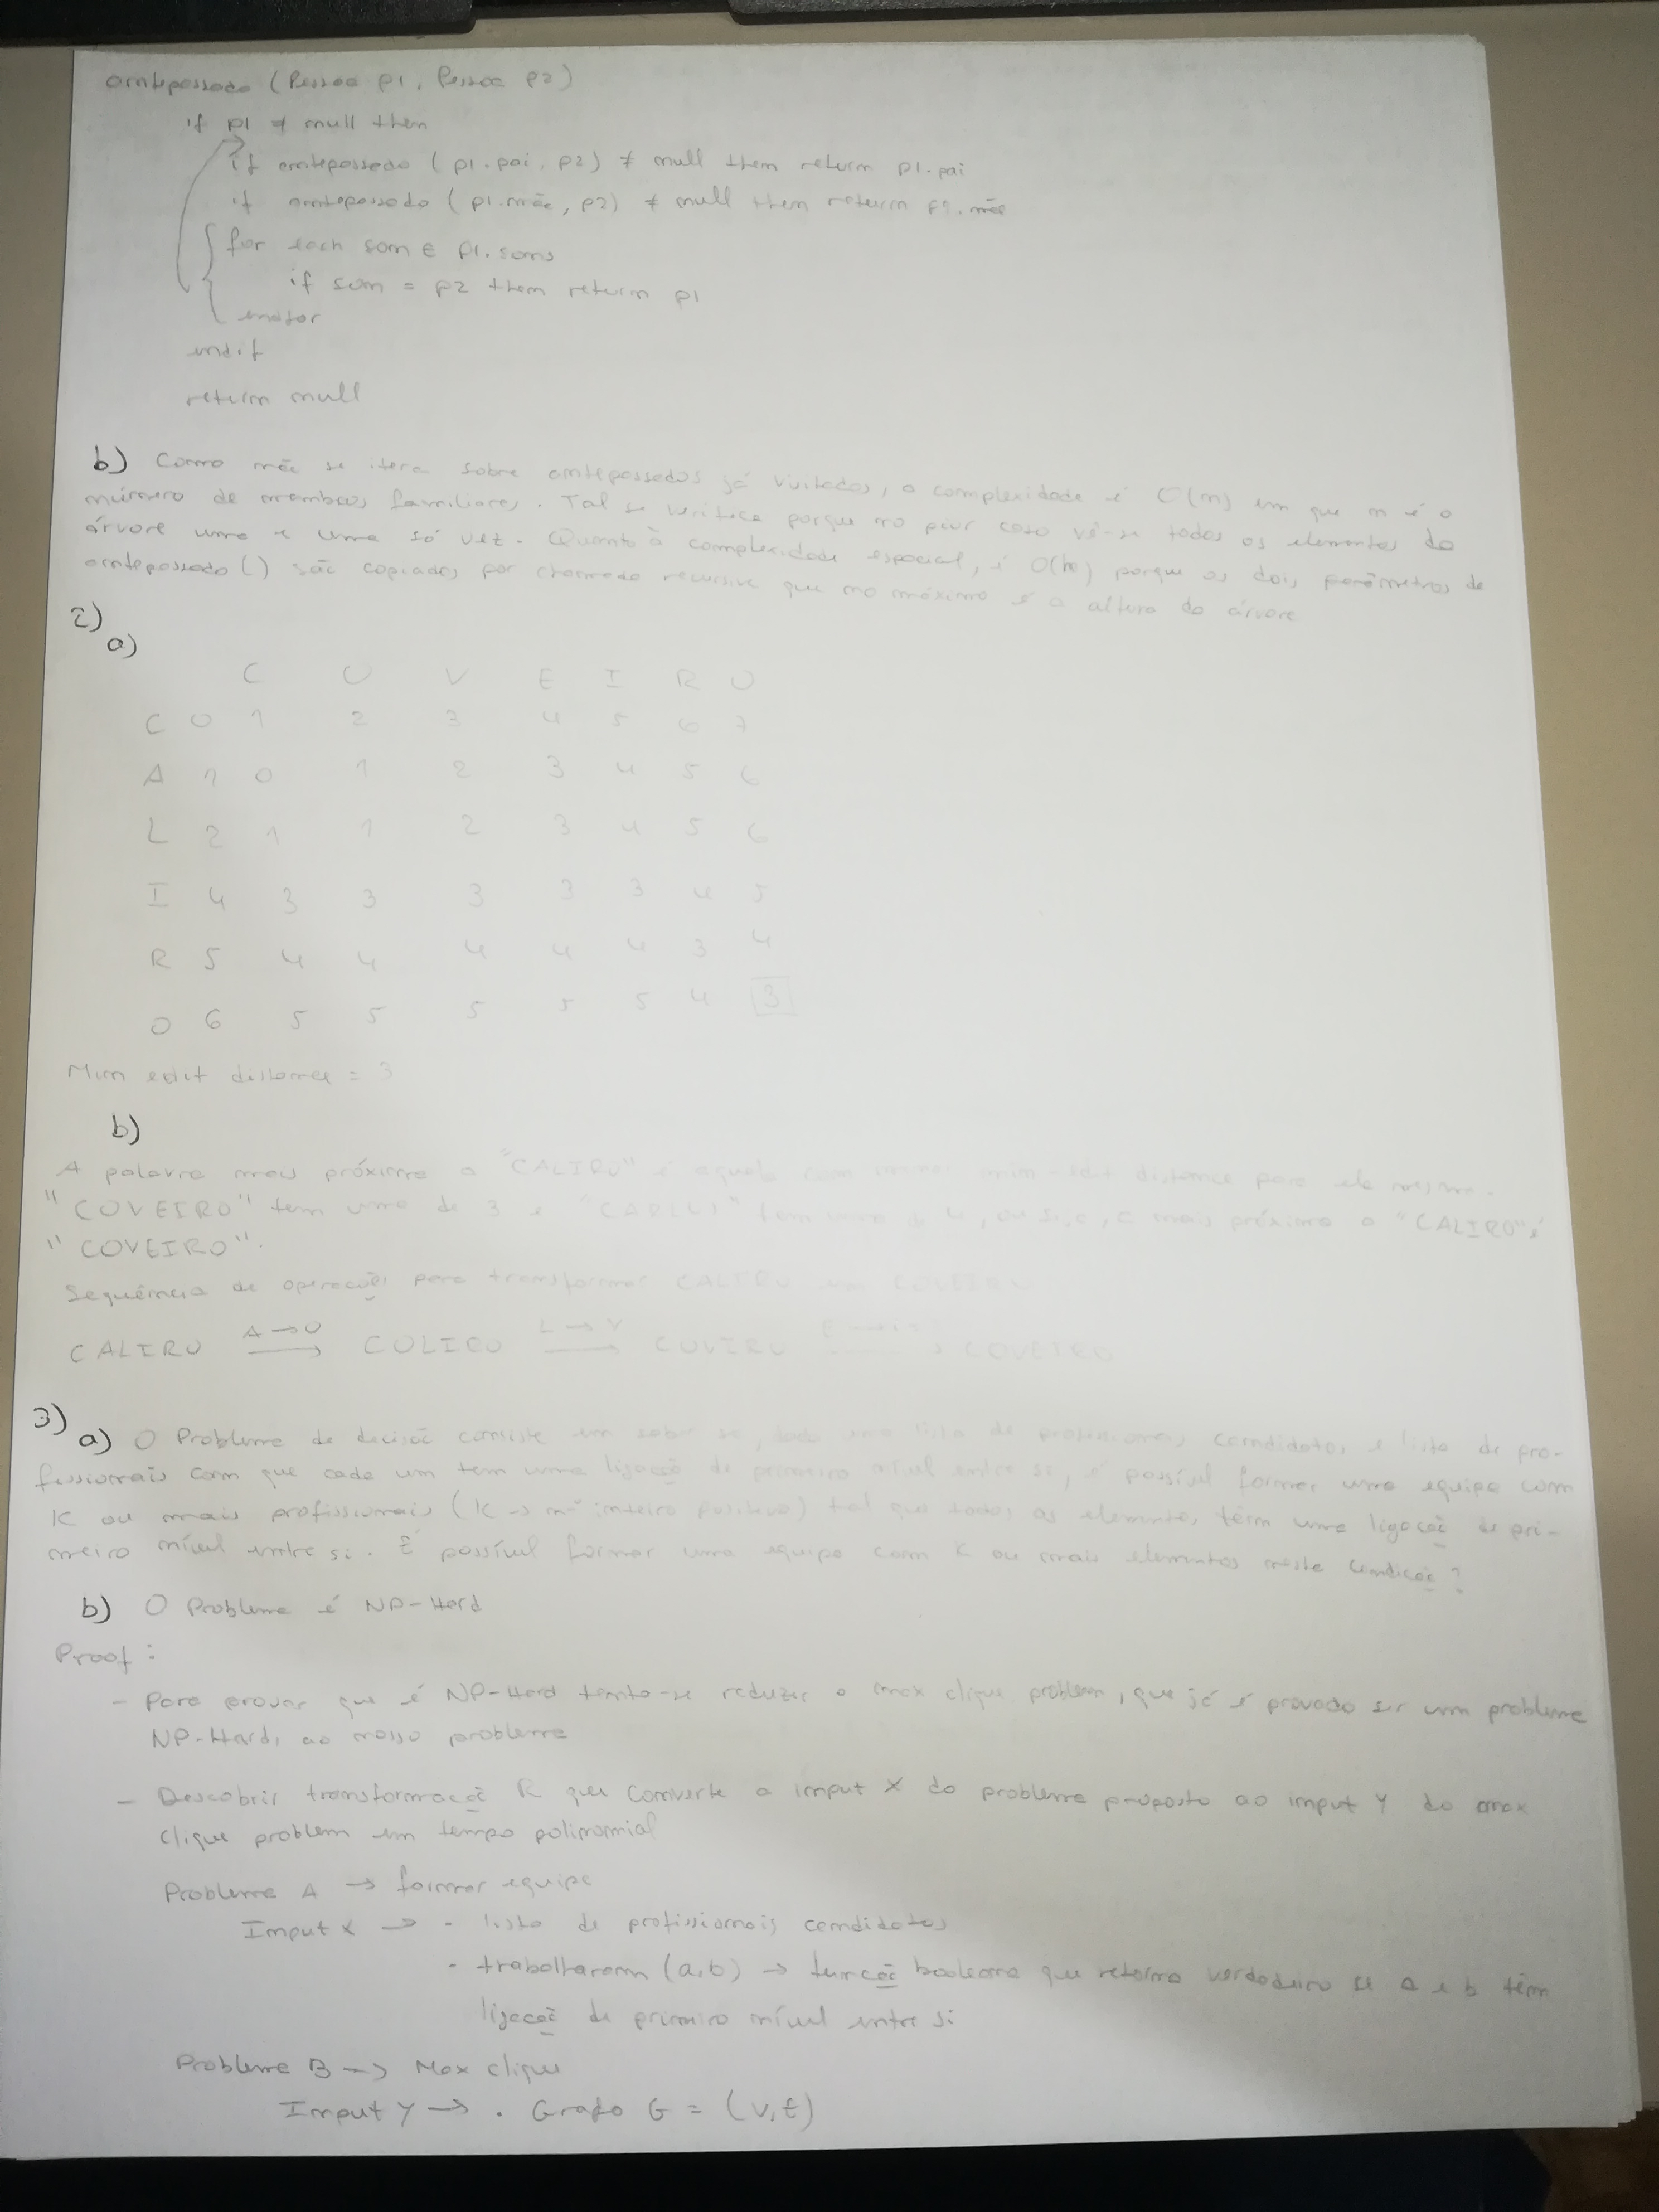 antepassado (Pessoa p1, Pessoa p2)
if p1 ≠ null then
if antepassado (p1.pai, p2) ≠ null then return p1.pai
if antepassado (p1.mãe, p2) ≠ null then return p1.mãe
for each son ∈ p1.sons
if son = p2 then return p1
endfor
endif
return null
b) Como não se itera sobre antepassados já visitados, a complexidade é O(n) em que n é o
número de membros familiares. Tal se verifica porque no pior caso vê-se todos os elementos da
árvore uma e uma só vez. Quanto à complexidade espacial, é O(h) porque os dois parâmetros de
antepassado() são copiados por chamada recursiva que no máximo é a altura da árvore
2)
a)
C O V E I R O
C 0 1 2 3 4 5 6 7
A 1 0 1 2 3 4 5 6
L 2 1 1 2 3 4 5 6
I 4 3 3 3 3 3 4 5
R 5 4 4 4 4 4 3 4
O 6 5 5 5 5 5 4 3
Min edit distance = 3
b)
A palavra mais próxima a "CALIRO" é aquela com menor min-edit distance para ela mesma.
"COVEIRO" tem uma de 3 e tem uma de 4, ou seja, a mais próxima a "CALIRO" é
"COVEIRO".
Sequência de operações para transformar CALIRO em COVEIRO
CALIRO A→O COLIRO L→V COVIRO COVEIRO
3)
a) O Problema de decisão consiste em saber se, dado uma lista de profissionais candidatos e lista de pro-
fissionais com que cada um tem uma ligação de primeiro nível entre si, é possível formar uma equipa com
K ou mais profissionais (K → nº inteiro positivo) tal que todos os elementos têm uma ligação de pri-
meiro nível entre si. É possível formar uma equipa com K ou mais elementos nesta condição?
b) O Problema é NP-Hard
Proof:
- Para provar que é NP-Hard tenta-se reduzir o max clique problem, que já é provado ser um problema
NP-Hard, ao nosso problema
- Descobrir transformação R que converte a input X do problema proposto ao input Y do max
clique problem em tempo polinomial
Problema A → formar equipa
Input X → · lista de profissionais candidatos
· trabalharam (a,b) → função booleana que retorna verdadeiro se a e b têm
ligação de primeiro nível entre si
Problema B → Max clique
Input Y → · Grafo G = (V,E)